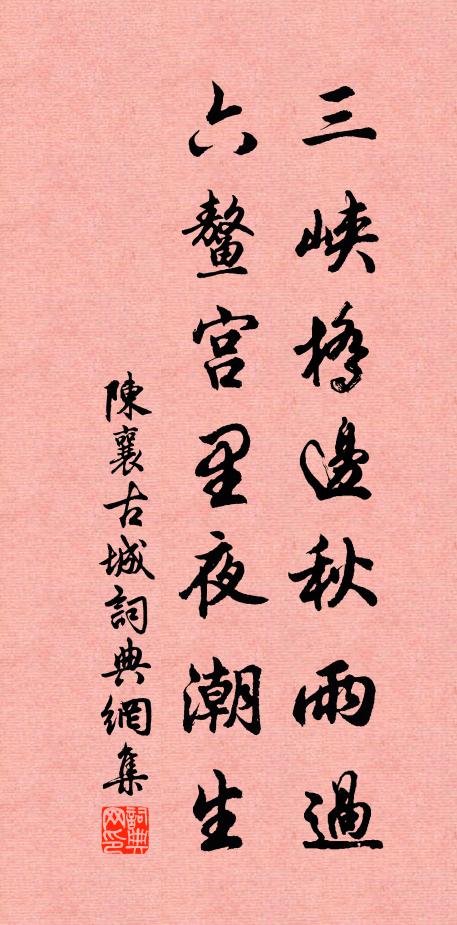 三峡橋邊秋雨過
六鰲宫里夜潮生
陳襄古城詞典網集
詞典網印